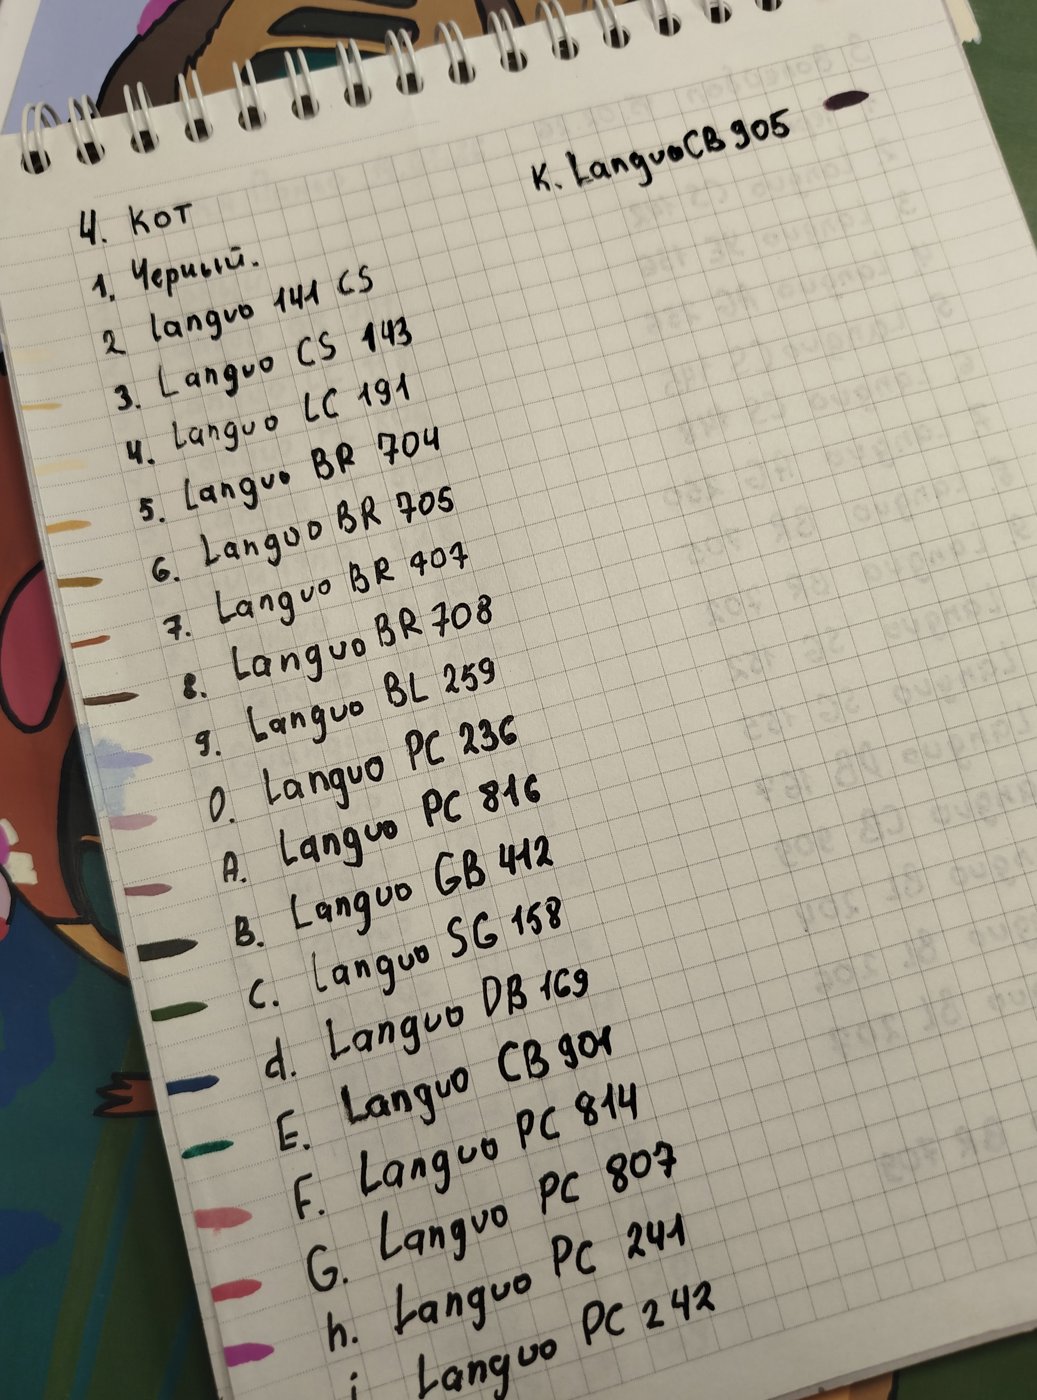 4. Кот
1. Черный.
2 Languo 141 CS
3. Languo CS 143
4. Languo LC 191
5. Languo BR 704
6. Languo BR 705
7. Languo BR 707
8. Languo BR 708
9. Languo BL 259
0. Languo PC 236
A. Languo PC 816
B. Languo GB 412
C. Languo SG 158
d. Languo DB 169
E. Languo CB 901
F. Languo PC 814
G. Languo PC 807
h. Languo PC 241
i Languo PC 242
K. Languo CB 905